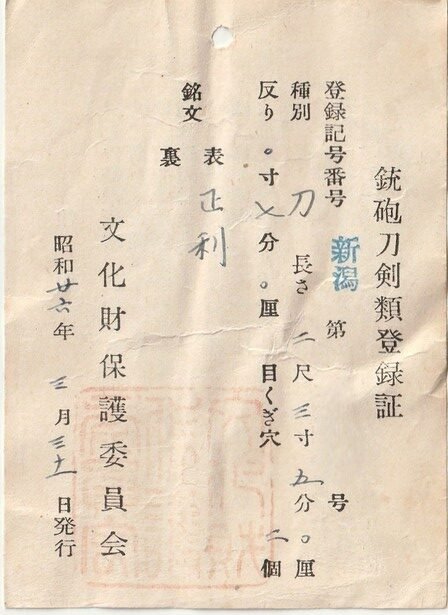 銃砲刀剣類登録証
登録記号番号 新潟 第 号
種別 刀 長さ 二尺三寸五分〇厘
反り 〇寸七分〇厘 目くぎ穴 二個
銘文 表 正利
裏
文化財保護委員会
昭和廿六年三月三十一日発行